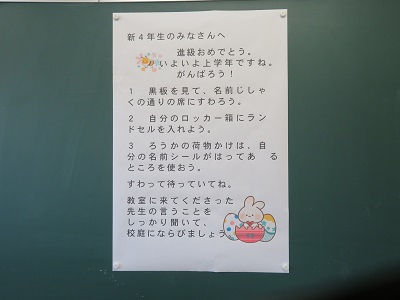 新4年生のみなさんへ
進級おめでとう。
いよいよ上学年ですね。
がんばろう！
1　黒板を見て、名前じしゃ
くの通りの席にすわろう。
2　自分のロッカー箱にラン
ドセルを入れよう。
3　ろうかの荷物かけは、自
分の名前シールがはってあ　る
ところを使おう。
すわって待っていてね。
教室に来てくださった
先生の言うことを
しっかり聞いて、
校庭にならびましょう。